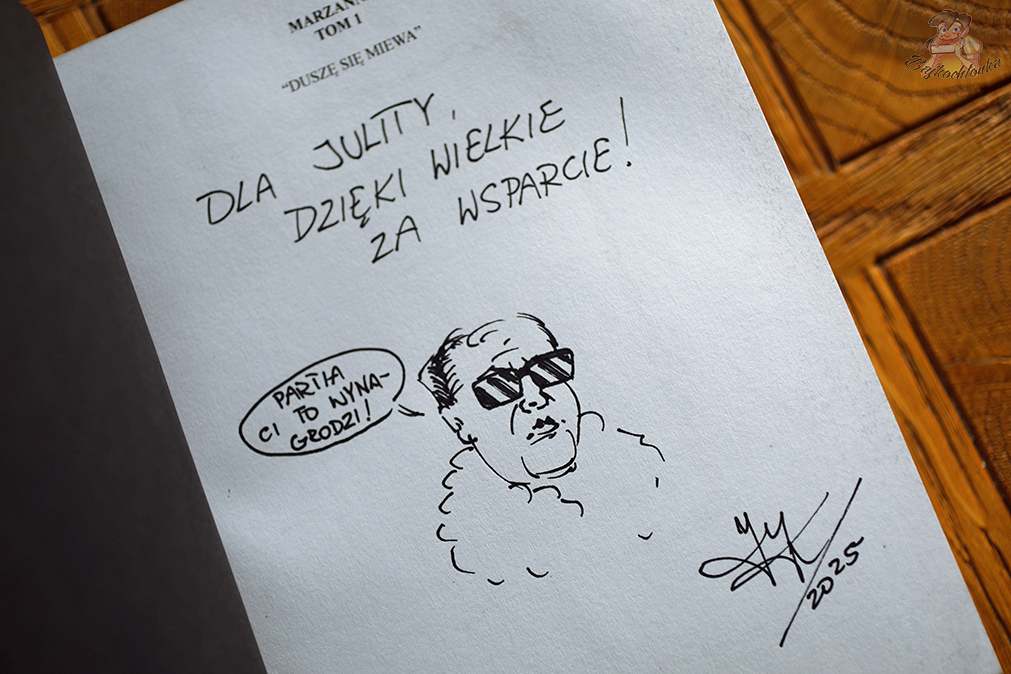 TOM 1
"DUSZĘ SIĘ MIEWA"
DLA JULITY,
DZIĘKI WIELKIE
ZA WSPARCIE!
PARTIA
CI TO WYNA-
GRODZI!
2025
Bajkochłonka